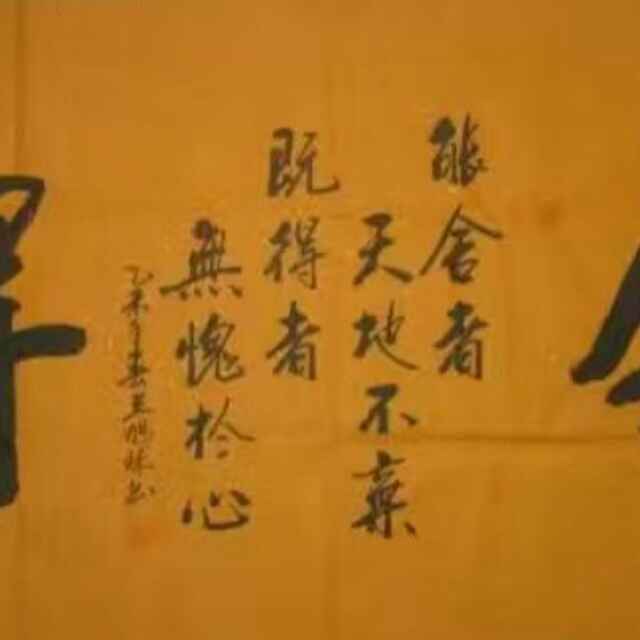 能舍者
天地不棄
既得者
無愧於心
乙未年春王